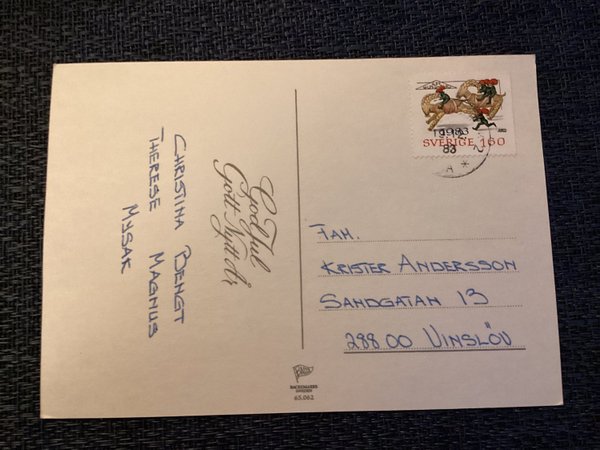 God Jul
Gott Nytt År
CHRISTINA BENGT
THERESE MAGNUS
MYSAK
1983
83
SVERIGE 160
A *
FAM.
KRISTER ANDERSSON
SANDGATAN 13
288 00 VINSLÖV
BACKHMANS
65.062